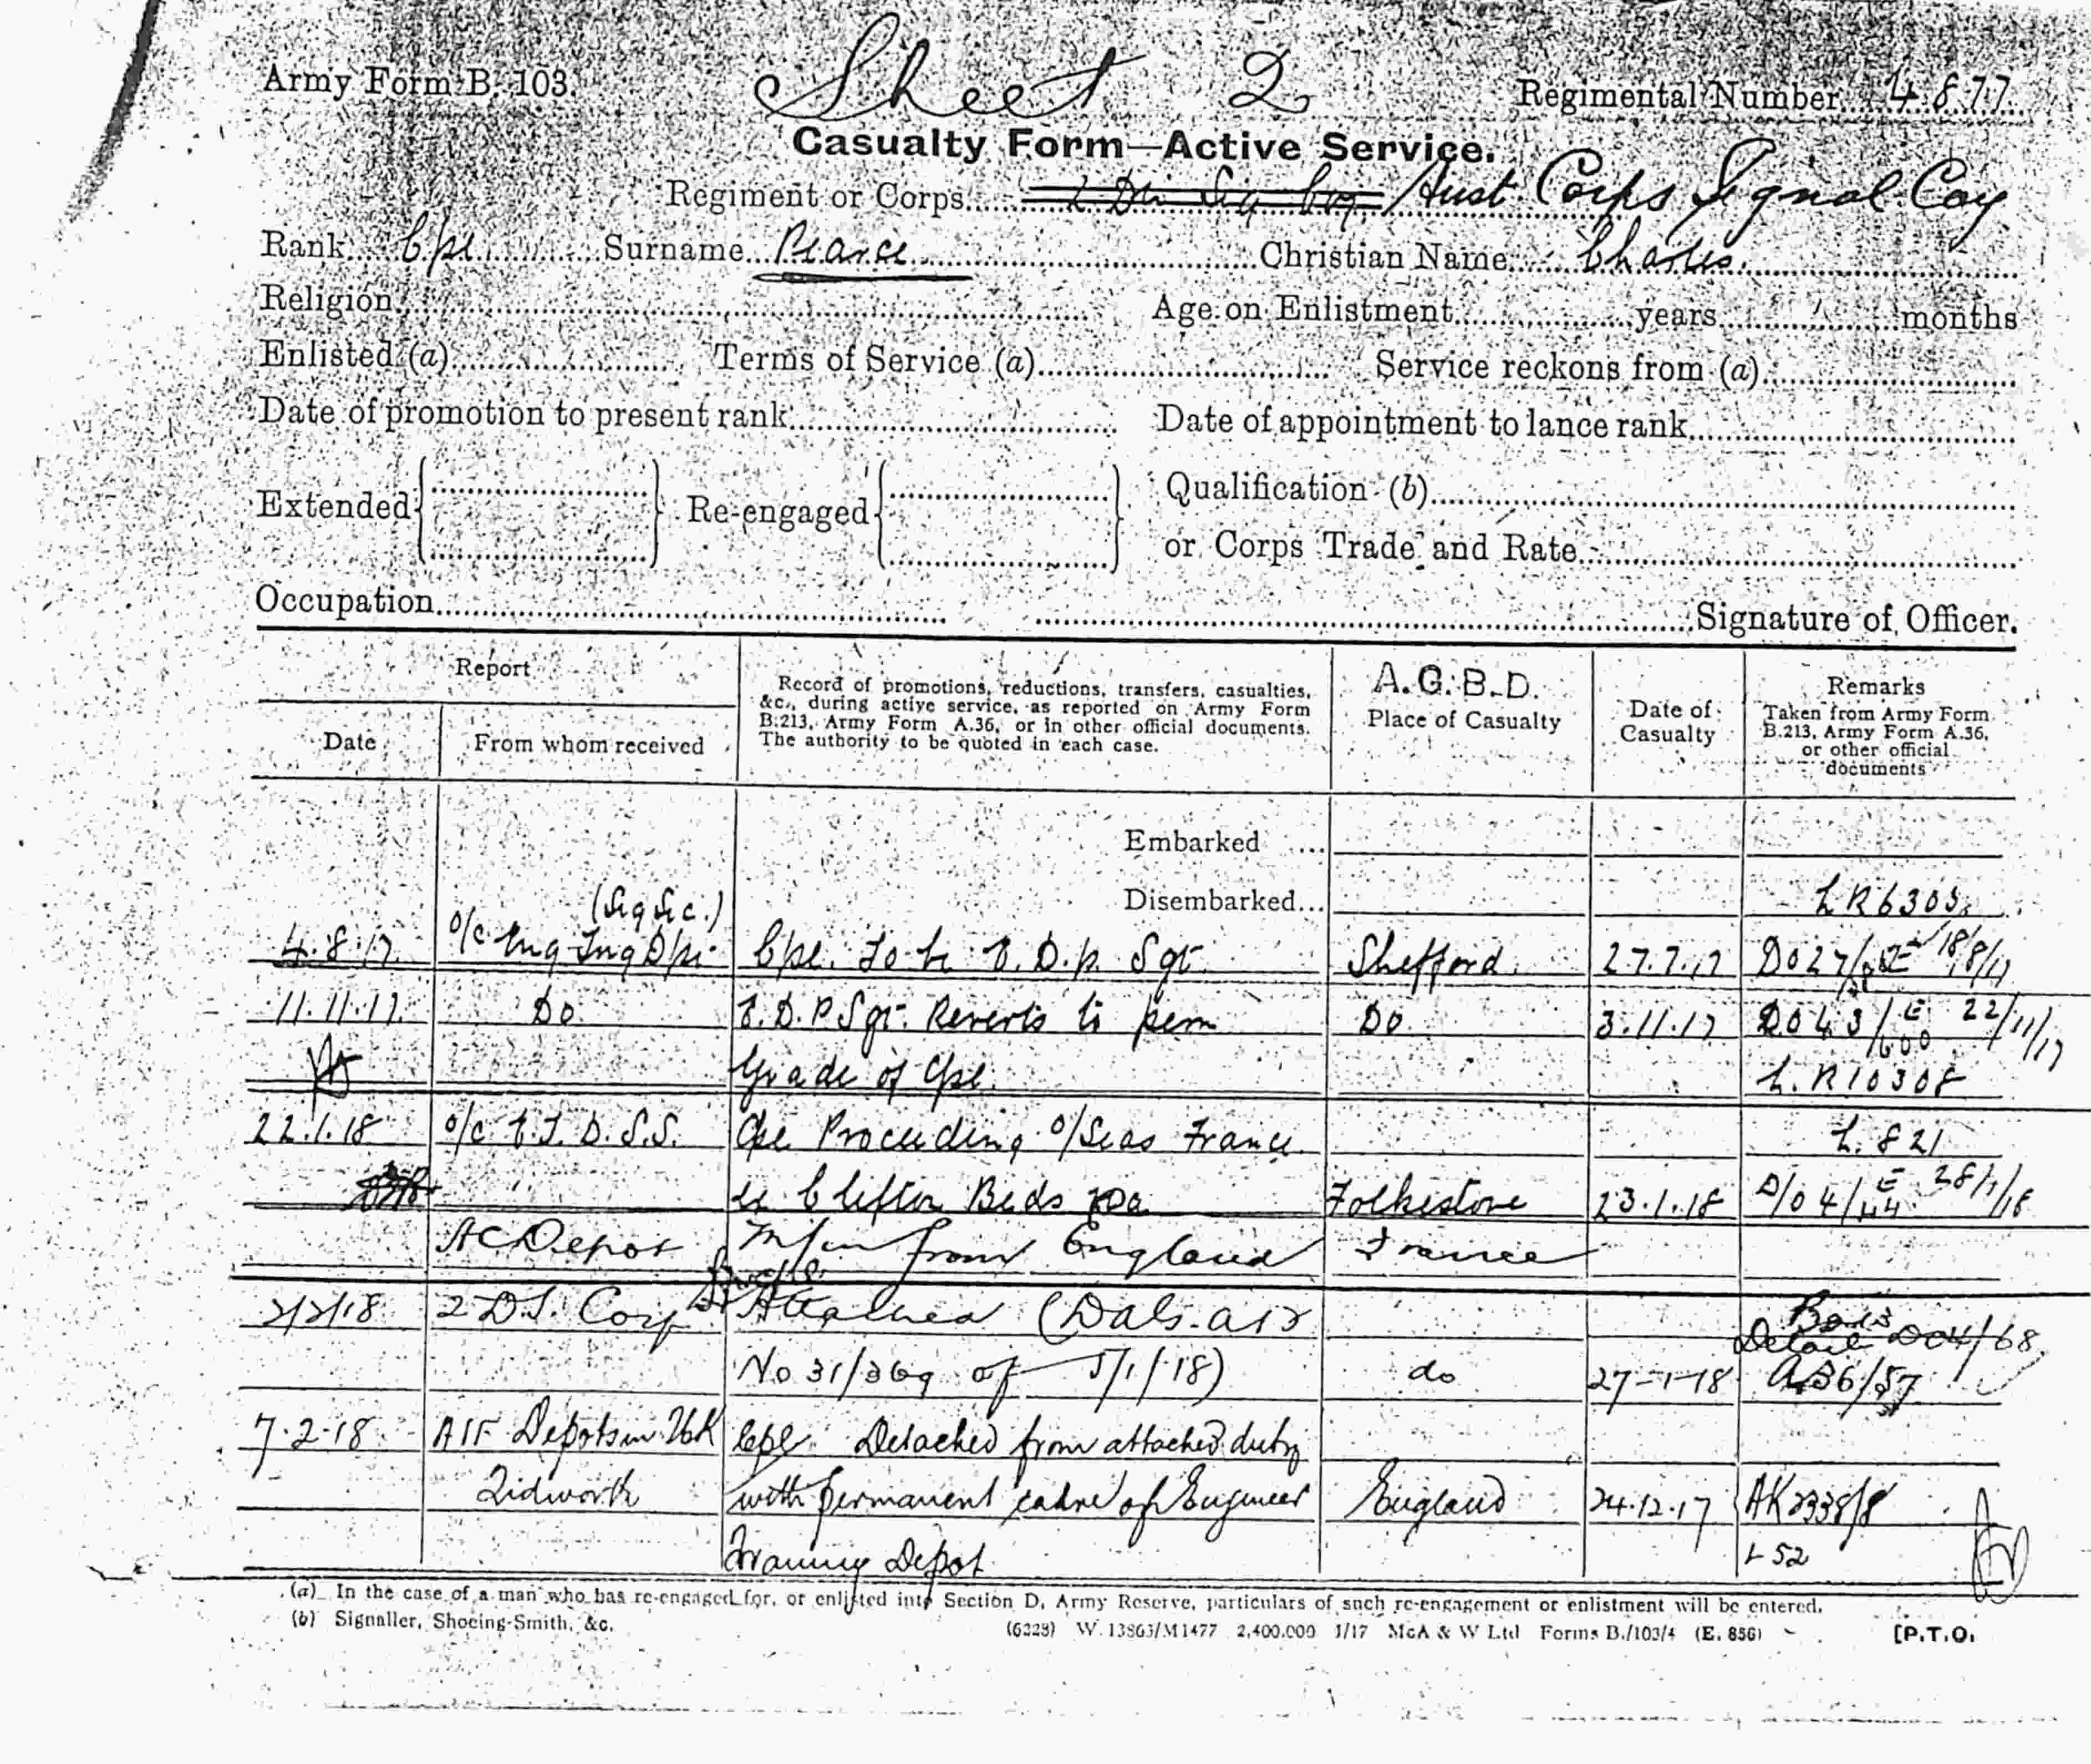 Sheet 2
Army Form B. 103.
Regimental Number 4877
Casualty Form—Active Service.
Regiment or Corps 2 Div Sig Coy Aust Corps Signal Coy
Rank Cpl Surname Pearce Christian Name Charles
Religion Age on Enlistment years months
Enlisted (a) Terms of Service (a) Service reckons from (a)
Date of promotion to present rank Date of appointment to lance rank
Extended Re-engaged Qualification (b)
or Corps Trade and Rate
Occupation Signature of Officer.
Report
Date From whom received
Record of promotions, reductions, transfers, casualties,
&c., during active service, as reported on Army Form
B.213, Army Form A.36, or in other official documents.
The authority to be quoted in each case.
A.G.B.D.
Place of Casualty
Date of
Casualty
Remarks
Taken from Army Form
B.213, Army Form A.36,
or other official
documents
Embarked ...
Disembarked... LR6305
(Sig Sec.)
4.8.17. O/c Eng Tng Dpt Cpl. to be E.D.P. Sgt Shefford 27.7.17 DO27/ 18/8/17
11.11.17. Do E.D.P Sgt. Reverts to perm Do 3.11.17 DO43/ E 22/11/17
600
Grade of Cpl. L.R10308
22.1.18 O/c E.T.D.S.S. Cpl Proceeding O/Seas France L.821
ex Clifton Beds Folkestone 23.1.18 D/O 4/44 E 28/1/18
AC Depot M/in from England France
2/2/18 2 D.S. Coy Attached (Dals. a12 Detail DO4/68
No 31/369 of 5/1/18) do 27-1-18 AB6/57
7.2.18 AIF Depots in UK Cpl Detached from attached duty
Tidworth with permanent cadre of Engineer England 24.12.17 AK2338/8
Training Depot L52
(a) In the case of a man who has re-engaged for, or enlisted into Section D, Army Reserve, particulars of such re-engagement or enlistment will be entered.
(b) Signaller, Shoeing-Smith, &c.
(6228) W. 13863/M1477 2,400,000 1/17 McA & W Ltd Forms B./103/4 (E. 856) [P.T.O.